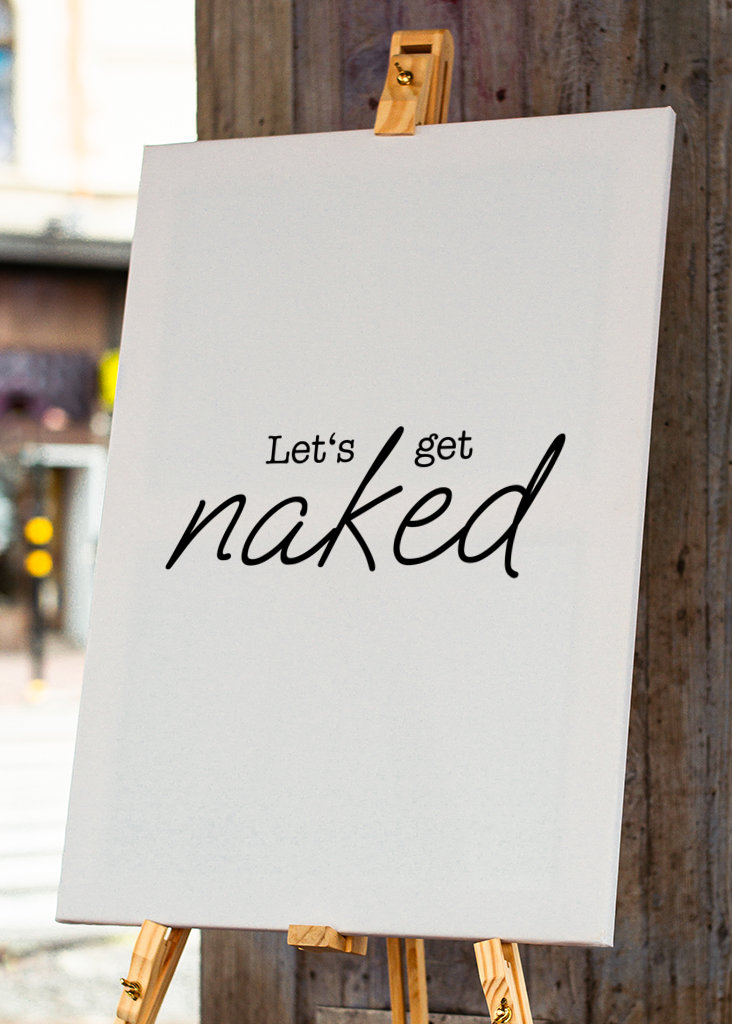 Let‘s get
naked